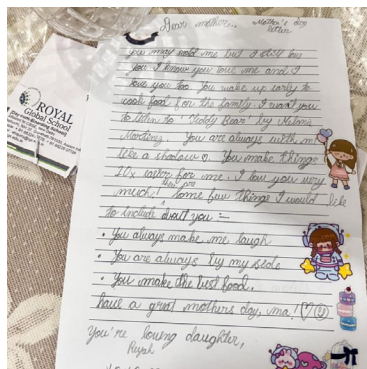 Dear mother..
Mother's day
letter
you may scold me but I still love
you. I know you love me and I
love you too. You wake up early to
cook food for the family. I want you
to listen to "Teddy Bear" by Melanie
Martinez. You are always with m
like a shadow ♡. You make things
10x easier for me. I love you very
much! some few things I would like
to include about you :-
• You always make me laugh
• You are always by my side
• You make the best food.
have a great mothers day, ma! ♡☺
You're loving daughter,
ROYAL
Global School